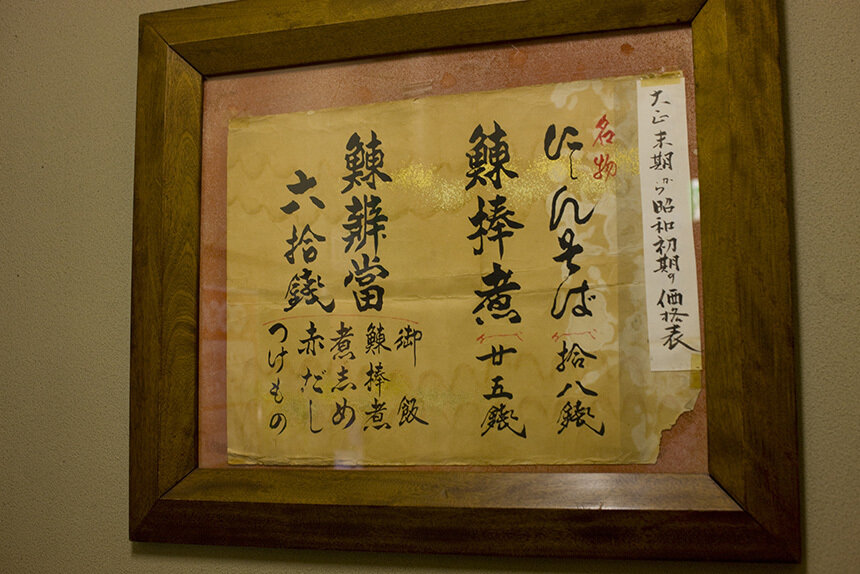 大正末期から昭和初期の価格表
名物
にしんそば 拾八錢
鰊棒煮 廿五錢
鰊辨當
六拾錢
御飯
鰊棒煮
煮志め
赤だし
つけもの